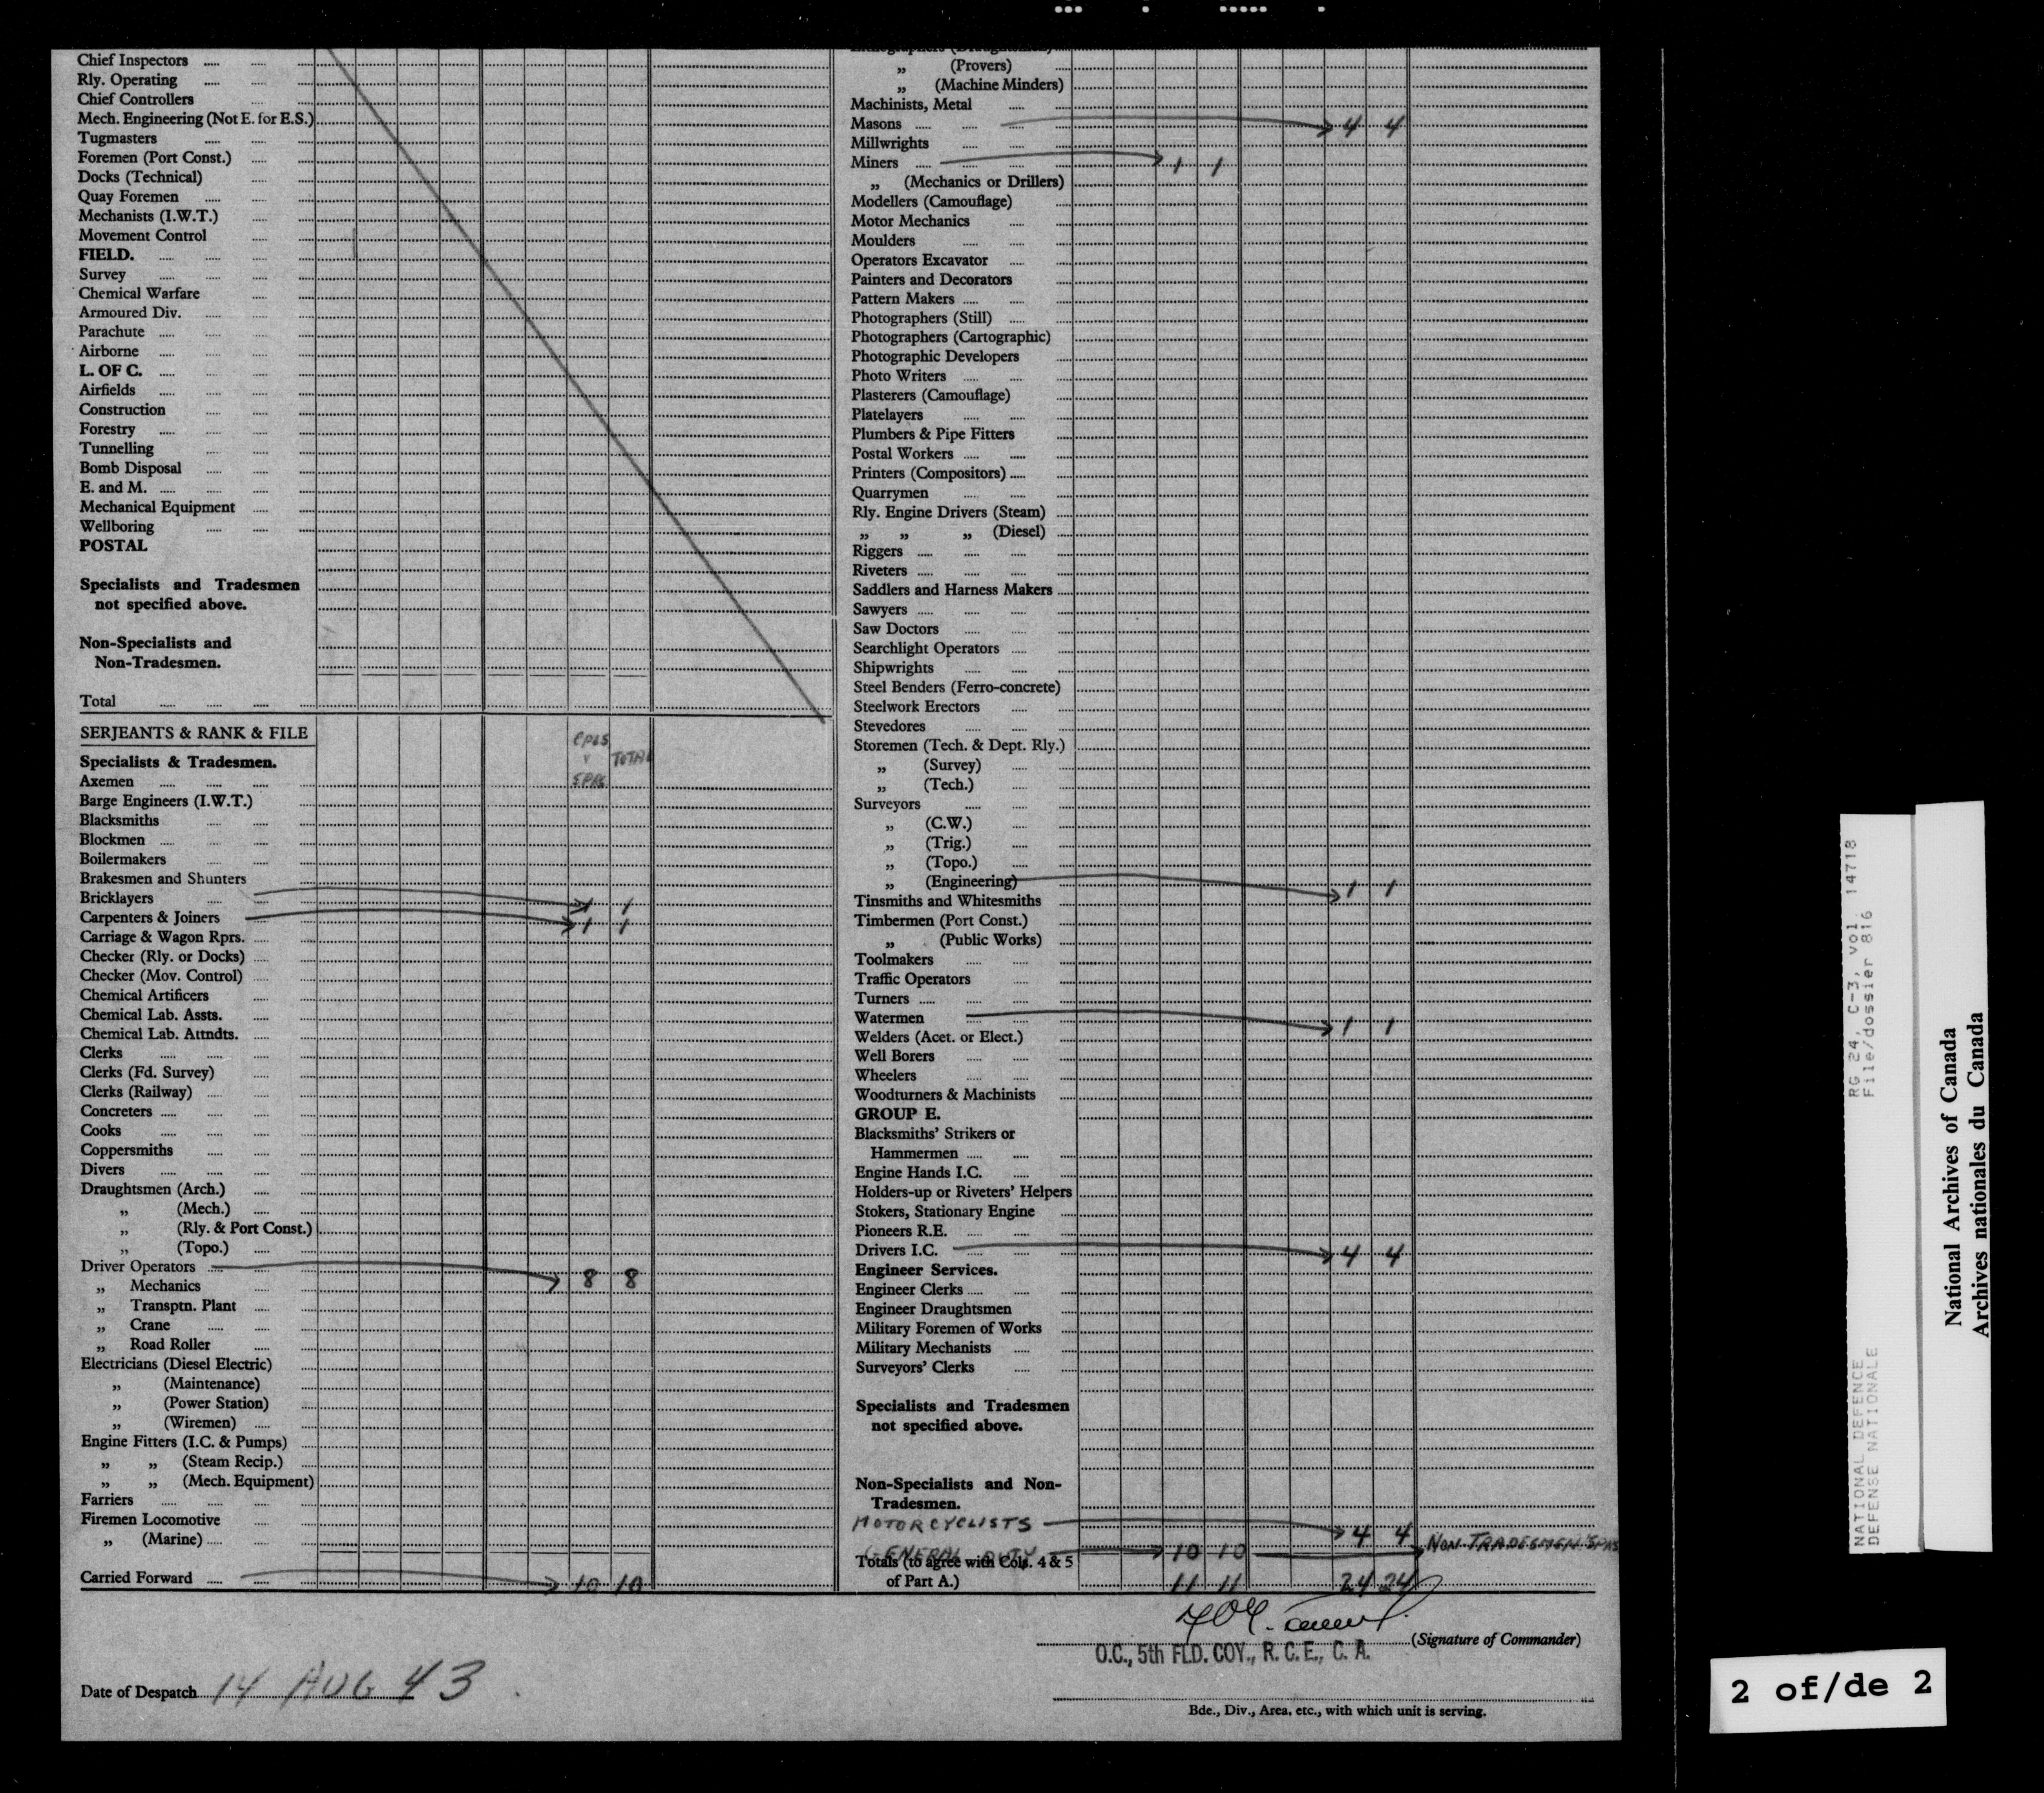 Chief Inspectors
Rly. Operating
Chief Controllers
Mech. Engineering (Not E. for E.S.)
Tugmasters
Foremen (Port Const.)
Docks (Technical)
Quay Foremen
Mechanists (I.W.T.)
Movement Control
FIELD.
Survey
Chemical Warfare
Armoured Div.
Parachute
Airborne
L. OF C.
Airfields
Construction
Forestry
Tunnelling
Bomb Disposal
E. and M.
Mechanical Equipment
Wellboring
POSTAL
Specialists and Tradesmen
not specified above.
Non-Specialists and
Non-Tradesmen.
Total
SERJEANTS & RANK & FILE
CPLS
SPRS
TOTAL
Specialists & Tradesmen.
Axemen
Barge Engineers (I.W.T.)
Blacksmiths
Blockmen
Boilermakers
Brakesmen and Shunters
Bricklayers 1 1
Carpenters & Joiners 1 1
Carriage & Wagon Rprs.
Checker (Rly. or Docks)
Checker (Mov. Control)
Chemical Artificers
Chemical Lab. Assts.
Chemical Lab. Attndts.
Clerks
Clerks (Fd. Survey)
Clerks (Railway)
Concreters
Cooks
Coppersmiths
Divers
Draughtsmen (Arch.)
„ (Mech.)
„ (Rly. & Port Const.)
„ (Topo.)
Driver Operators 8 8
„ Mechanics
„ Transptn. Plant
„ Crane
„ Road Roller
Electricians (Diesel Electric)
„ (Maintenance)
„ (Power Station)
„ (Wiremen)
Engine Fitters (I.C. & Pumps)
„ „ (Steam Recip.)
„ „ (Mech. Equipment)
Farriers
Firemen Locomotive
„ (Marine)
Carried Forward 10 10
Lithographers (Draughtsmen)
„ (Provers)
„ (Machine Minders)
Machinists, Metal
Masons 4 4
Millwrights
Miners 1 1
„ (Mechanics or Drillers)
Modellers (Camouflage)
Motor Mechanics
Moulders
Operators Excavator
Painters and Decorators
Pattern Makers
Photographers (Still)
Photographers (Cartographic)
Photographic Developers
Photo Writers
Plasterers (Camouflage)
Platelayers
Plumbers & Pipe Fitters
Postal Workers
Printers (Compositors)
Quarrymen
Rly. Engine Drivers (Steam)
„ „ „ (Diesel)
Riggers
Riveters
Saddlers and Harness Makers
Sawyers
Saw Doctors
Searchlight Operators
Shipwrights
Steel Benders (Ferro-concrete)
Steelwork Erectors
Stevedores
Storemen (Tech. & Dept. Rly.)
„ (Survey)
„ (Tech.)
Surveyors
„ (C.W.)
„ (Trig.)
„ (Topo.)
„ (Engineering) 1 1
Tinsmiths and Whitesmiths
Timbermen (Port Const.)
„ (Public Works)
Toolmakers
Traffic Operators
Turners
Watermen 1 1
Welders (Acet. or Elect.)
Well Borers
Wheelers
Woodturners & Machinists
GROUP E.
Blacksmiths' Strikers or
Hammermen
Engine Hands I.C.
Holders-up or Riveters' Helpers
Stokers, Stationary Engine
Pioneers R.E.
Drivers I.C. 4 4
Engineer Services.
Engineer Clerks
Engineer Draughtsmen
Military Foremen of Works
Military Mechanists
Surveyors' Clerks
Specialists and Tradesmen
not specified above.
Non-Specialists and Non-
Tradesmen.
MOTORCYCLISTS 4 4
GENERAL DUTY 10 10 NON-TRADESMEN SPRS
Totals (to agree with Cols. 4 & 5
of Part A.) 11 11 24 24
(Signature of Commander)
O.C., 5th FLD. COY., R. C. E., C. A.
Date of Despatch 14 AUG 43
Bde., Div., Area, etc., with which unit is serving.
NATIONAL DEFENCE RG 24, C-3, vol. 14718
DEFENSE NATIONALE File/dossier 816
National Archives of Canada
Archives nationales du Canada
2 of/de 2